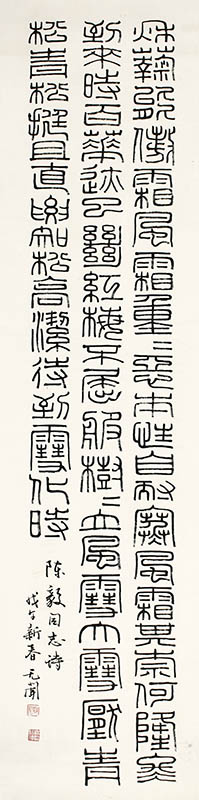 秋菊能傲霜風霜重〻惡本性自耐寒風霜其奈何隆冬
到來時百華迹已絕紅梅不屈服樹〻立風雪大雪壓青
松青松挺且直欲知松高潔待到雪化時
陈毅同志诗
戊午新春